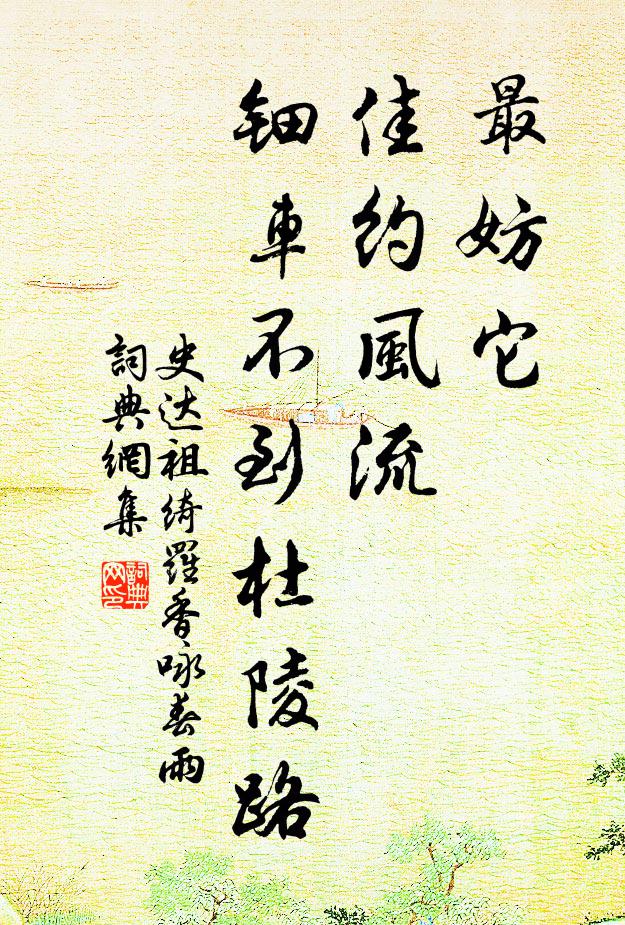 最妨它
佳约風流
鈿車不到杜陵路
史达祖绮羅香咏春雨
詞典網集
詞典
网印